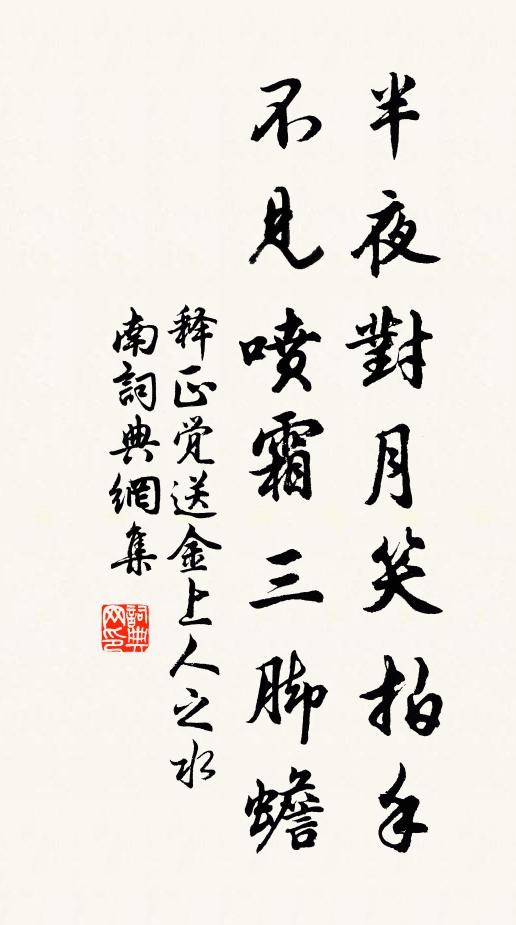 半夜對月笑拍手
不見噴霜三脚蟾
释正觉送金上人之水
南詞典網集
詞典网印